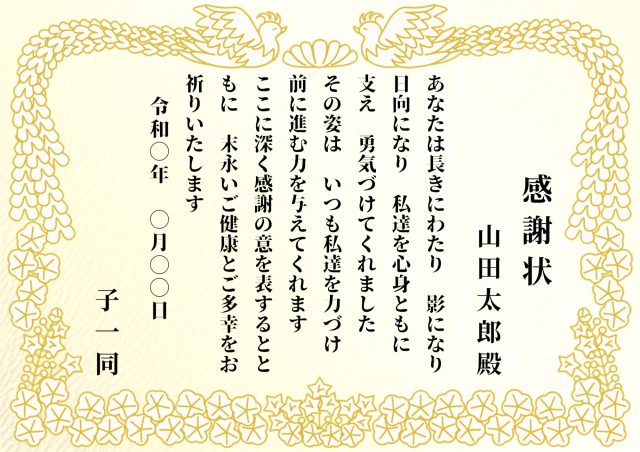 感謝状
山田太郎殿
あなたは長きにわたり　影になり
日向になり　私達を心身ともに
支え　勇気づけてくれました
その姿は　いつも私達を力づけ
前に進む力を与えてくれます
ここに深く感謝の意を表するとと
もに　末永いご健康とご多幸をお
祈りいたします
令和〇年　〇月〇〇日
子一同